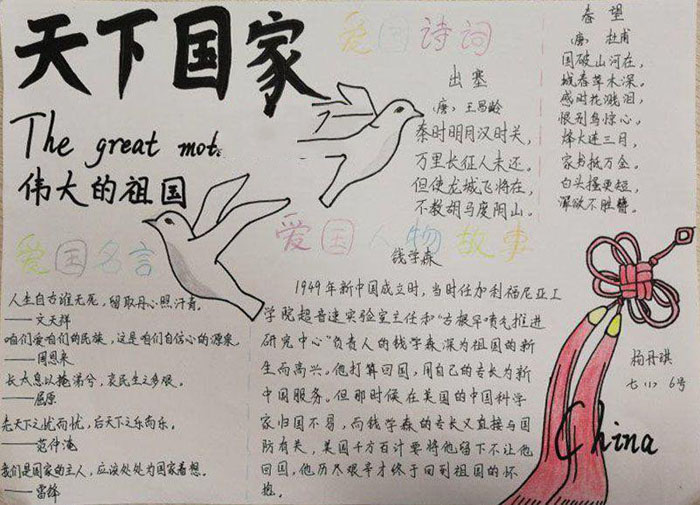 天下国家
The great mot
伟大的祖国
爱国诗词
出塞
(唐) 王昌龄
秦时明月汉时关，
万里长征人未还。
但使龙城飞将在，
不教胡马度阴山。
春望
(唐) 杜甫
国破山河在，
城春草木深。
感时花溅泪，
恨别鸟惊心。
烽火连三月，
家书抵万金。
白头搔更短，
浑欲不胜簪。
爱国名言
人生自古谁无死，留取丹心照汗青。
——文天祥
咱们爱咱们的民族，这是咱们自信心的源泉。
——周恩来
长太息以掩涕兮，哀民生之多艰。
——屈原
先天下之忧而忧，后天下之乐而乐。
——范仲淹
我们是国家的主人，应该处处为国家着想。
——雷锋
爱国人物故事
钱学森
1949年新中国成立时，当时任加利福尼亚工
学院超音速实验室主任和"古根罕喷气推进
研究中心"负责人的钱学森深为祖国的新
生而高兴。他打算回国，用自己的专长为新
中国服务。但那时候在美国的中国科学
家归国不易，而钱学森的专长又直接与国
防有关，美国千方百计要将他留下不让他
回国，他历尽艰辛才终于回到祖国的怀
抱。
杨丹琪
七(1) 6号
China